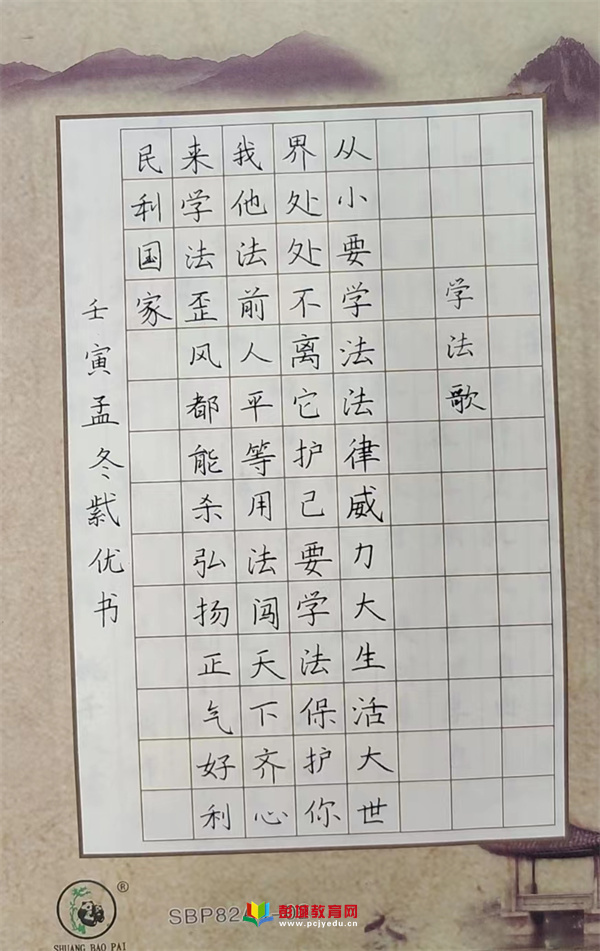 学法歌
从小要学法法律威力大生活大世
界处处不离它护己要学法保护你
我他法前人平等用法闯天下齐心
来学法歪风都能杀弘扬正气好利
民利国家
壬寅孟冬紫优书
SHUANG BAO PAI
®
SBP82
彭城教育网
www.pcjyedu.cn